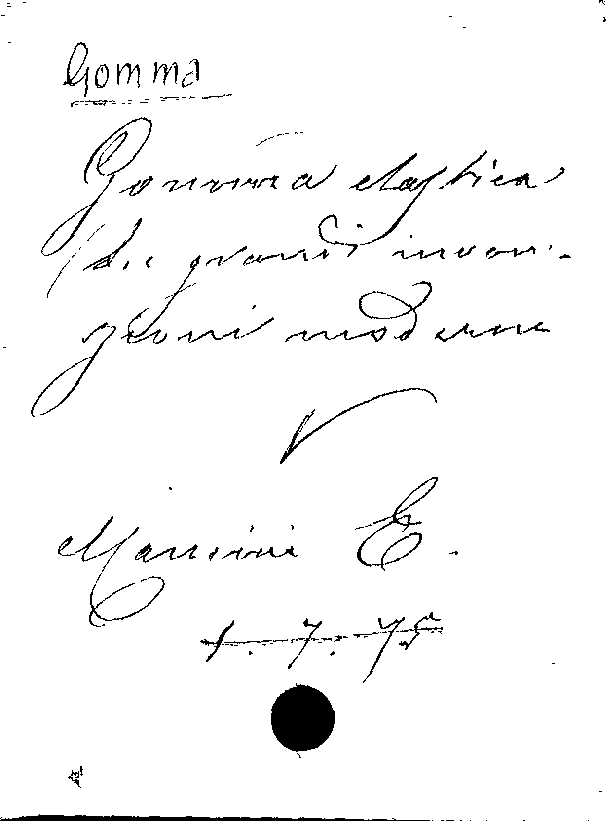 Gomma
Gomma elastica
(die grandi inven-
zioni moderne
Mancini E.
1.7.75